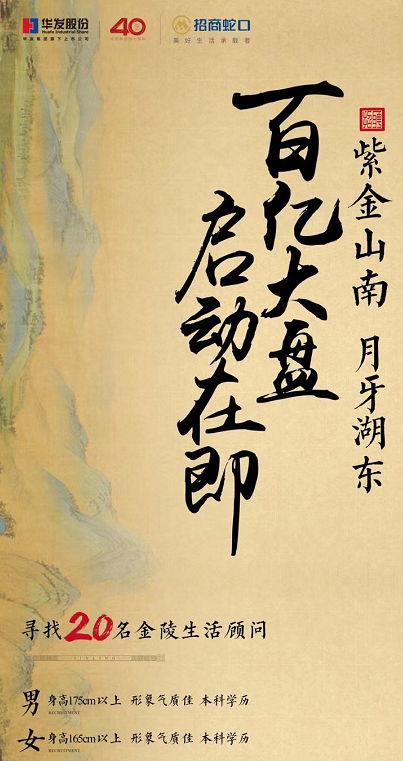 华发股份
Huafa Industrial Share
华发集团旗下上市公司
40
招商蛇口
美好生活承载者
紫金山南 月牙湖东
百亿大盘
启动在即
寻找20名金陵生活顾问
JINLING
男 身高175cm以上 形象气质佳 本科学历
RECRUITMENT
女 身高165cm以上 形象气质佳 本科学历
RECRUITMENT